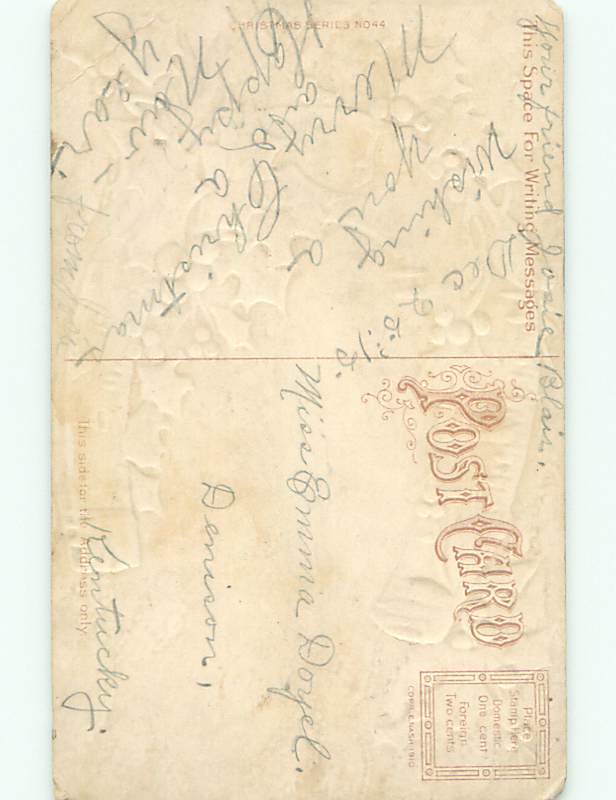 CHRISTMAS SERIES NO 44
This Space For Writing Messages
Dec 25. 15.
Wishing
You a
Merry
Xmas
Happy
New
Year
from
Your friend Josie Blain.
POST CARD
Place
Stamp Here
Domestic
One cent
Foreign
Two cents
COPR. E. NASH 1910
Miss Emma Doyel.
Denison,
Kentucky.
This side for the Address only